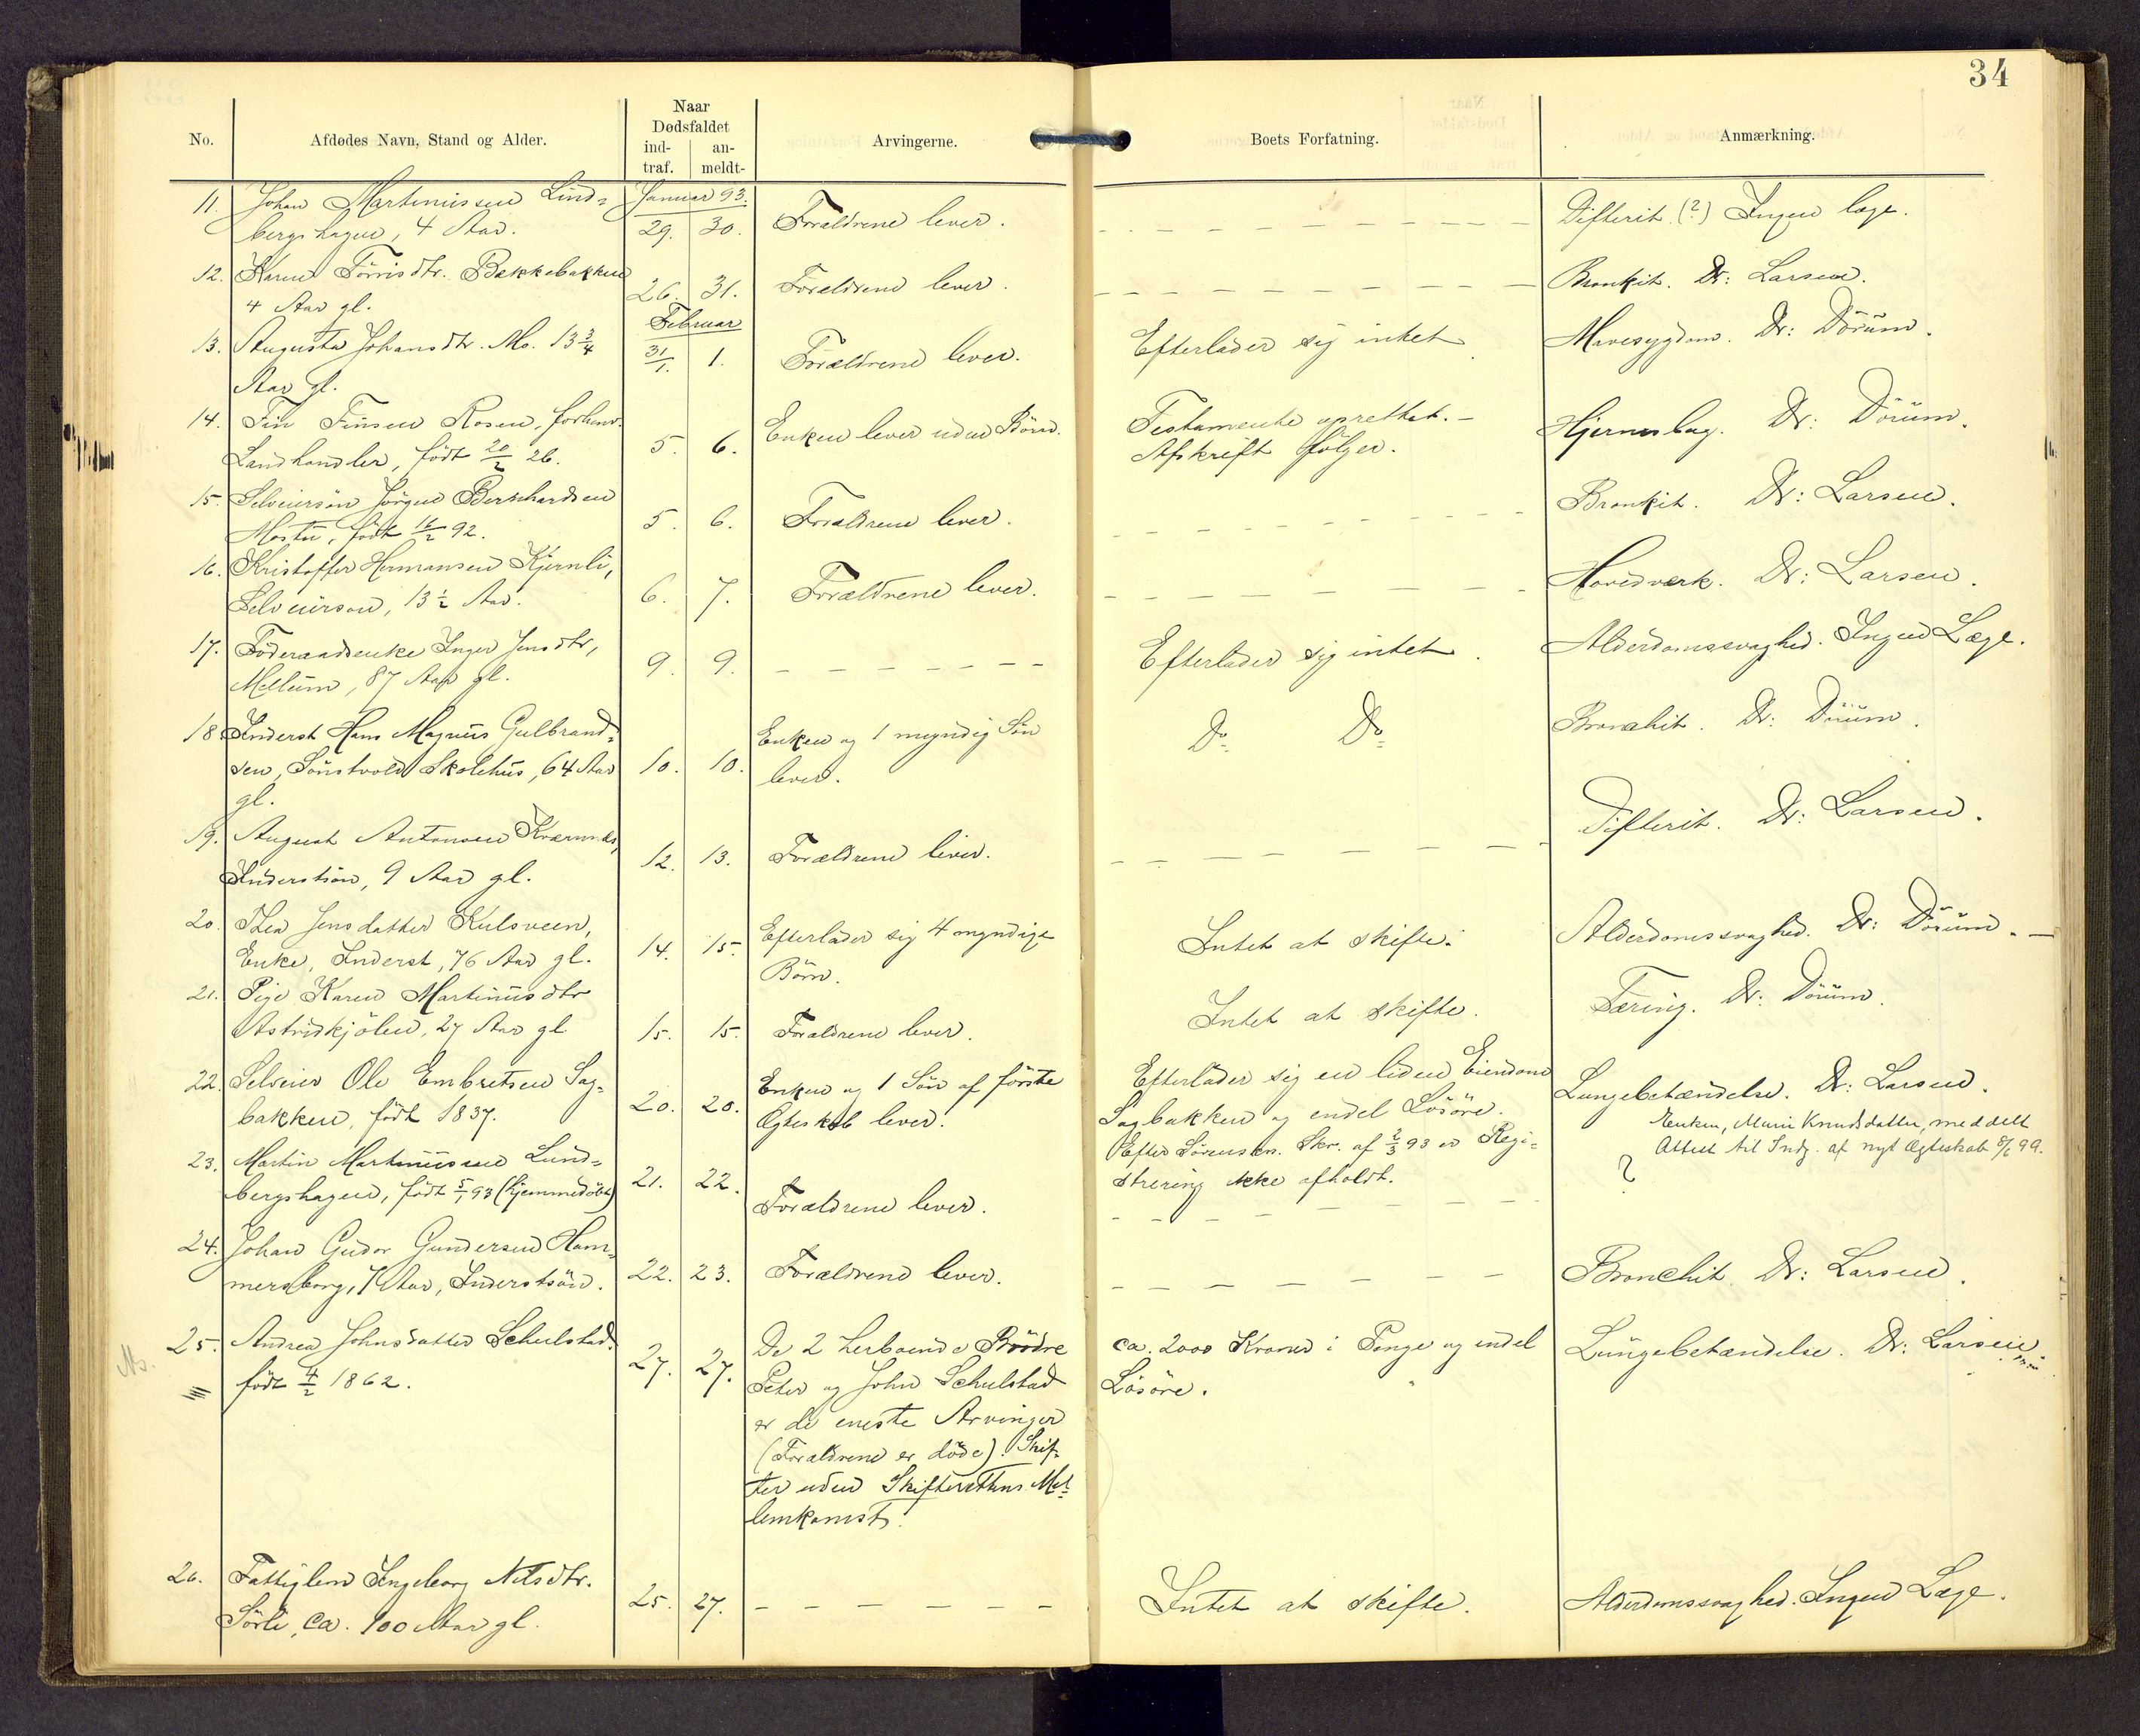 34
No.
Afdødes Navn, Stand og Alder.
Naar
Dødsfaldet
ind-
traf.
an-
meldt-
Arvingerne.
Boets Forfatning.
Anmærkning.
11. Johan Martinussen Lind- Januar 93.
bergshagen, 4 Aar. 29. 30. Forældrene lever. Difterit (?) Ingen læge.
12. Karen Törrisdtr. Bakkebakken
4 Aar gl. 26. 31. Forældrene lever. Bronkit. Dr: Larsen.
Februar
13. Augusta Johansdtr. Mo. 13 3/4
Aar gl. 31/1. 1. Forældrene lever. Efterlader sig intet. Mavesygdom. Dr: Dörum.
14. Fin Finsen Rosen, forhenv.
Landhandler, født 20/2 26. 5. 6. Enken lever uden Börn. Testamente oprettet. -
Afskrift følger. Hjerneslag. Dr: Dörum.
15. Selveiersön Jörgen Bernhardsen
Mostu, født 16/2 92. 5. 6. Forældrene lever. Bronkit. Dr: Larsen.
16. Kristoffer Hermansen Kjernli,
Selveiersøn, 13 1/2 Aar. 6. 7. Forældrene lever. Hovedværk. Dr: Larsen.
17. Föderaadsenke Inger Jensdtr,
Mellum, 87 Aar gl. 9. 9. Efterlader sig intet. Alderdomssvaghed. Ingen Læge.
18. Inderst Hans Magnus Gulbrand-
sen, Sönstvold Skolehus, 64 Aar
gl. 10. 10. Enken og 1 myndig Sön
lever. Do Do Bronchit. Dr: Dörum.
19. August Antonsen Kværnnes,
Inderstsön, 9 Aar gl. 12. 13. Forældrene lever. Difterit. Dr: Larsen.
20. Thea Jensdatter Kulsveen,
Enke, Inderst, 76 Aar gl. 14. 15. Efterlader sig 4 myndige
Börn. Intet at skifte. Alderdomssvaghed. Dr: Dörum. -
21. Pige Karen Martinusdtr
Astridkjölen, 27 Aar gl 15. 15. Forældrene lever. Intet at skifte. Tæring. Dr: Dörum.
22. Selveier Ole Embretsen Sag-
bakken, født 1837. 20. 20. Enken og 1 Sön af förste
Ægteskab lever. Efterlader sig en liden Eiendom
Sagbakken og endel Lösöre.
Efter Sörensksr. Skr. af 2/3 93 er Regi-
strering ikke afholdt. Lungebetændelse. Dr: Larsen.
Enken, Marie Knudsdatter, meddelt
Attest til Indg. af nyt Ægteskab 8/6 99.
23. Martin Martinussen Lund-
bergshagen, født 5/1 93 (hjemmedöbt) 21. 22. Forældrene lever. ?
24. Johan Gudor Gundersen Ham-
mersborg, 7 Aar, Inderstsön. 22. 23. Forældrene lever. Bronchit Dr: Larsen.
25. Andrea Johnsdatter Schulstad.
født 4/2 1862. 27. 27. De 2 herboende Brödre
Peter og John Schulstad
er de eneste Arvinger
(Forældrene er döde). Skif-
ter uden Skifterettens Mel-
lemkomst. ca. 2000 Kroner i Penge og endel
Lösöre. Lungebetændelse. Dr: Larsen.
26. Fattiglem Ingeborg Nilsdtr.
Sörli, ca. 100 Aar gl. 25. 27. Intet at skifte. Alderdomssvaghed. Ingen Læge.